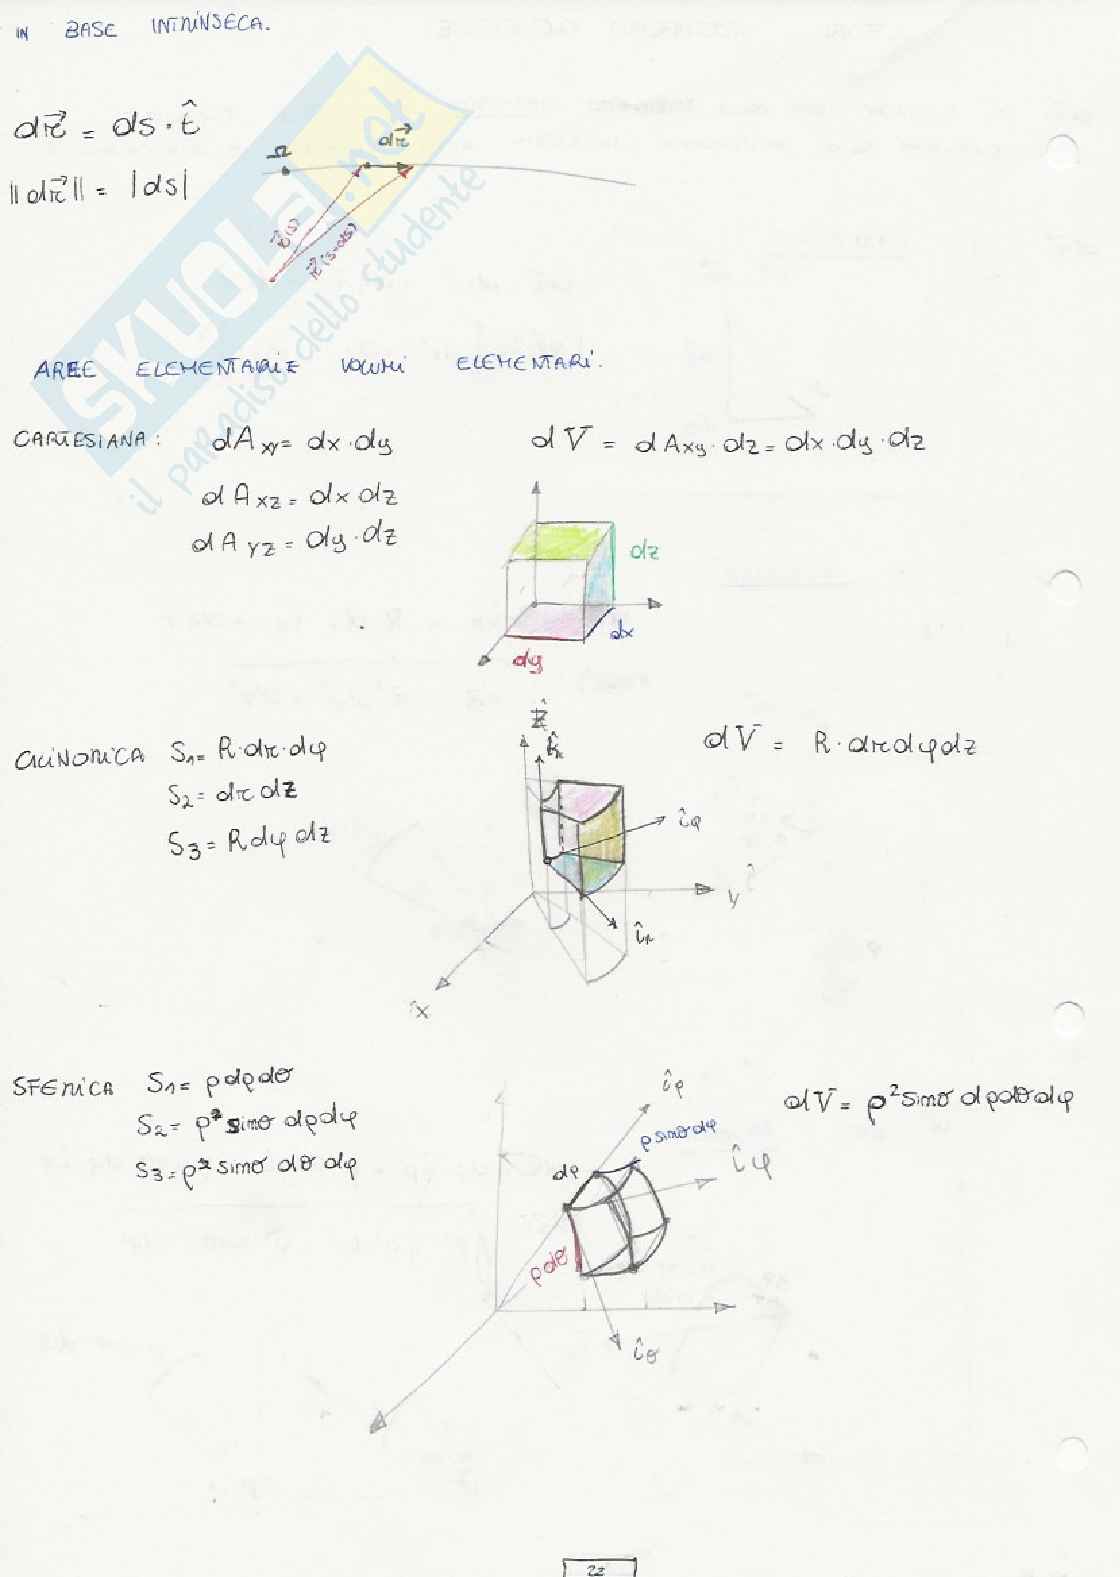 IN BASE INTRINSECA.
dr⃗ = ds · t̂
||dr⃗|| = |ds|
dr⃗
r⃗(s)
r⃗(s+ds)
SKUOLA.net
il paradiso dello studente
AREE ELEMENTARI E VOLUMI ELEMENTARI.
CARTESIANA: dA xy = dx · dy dV = dAxy · dz = dx · dy · dz
dA xz = dx dz
dA yz = dy · dz
dz
dx
dy
CILINDRICA S1 = R · dr · dφ dV = R · dr dφ dz
S2 = dr dz
S3 = R dφ dz
ẑ
k̂
îφ
y
îr
x
SFERICA S1 = ρ dρ dθ dV = ρ² sinθ dρ dθ dφ
S2 = ρ sinθ dρ dφ
S3 = ρ² sinθ dθ dφ
îρ
ρ sinθ dφ
dρ
îφ
ρ dθ
îθ
22